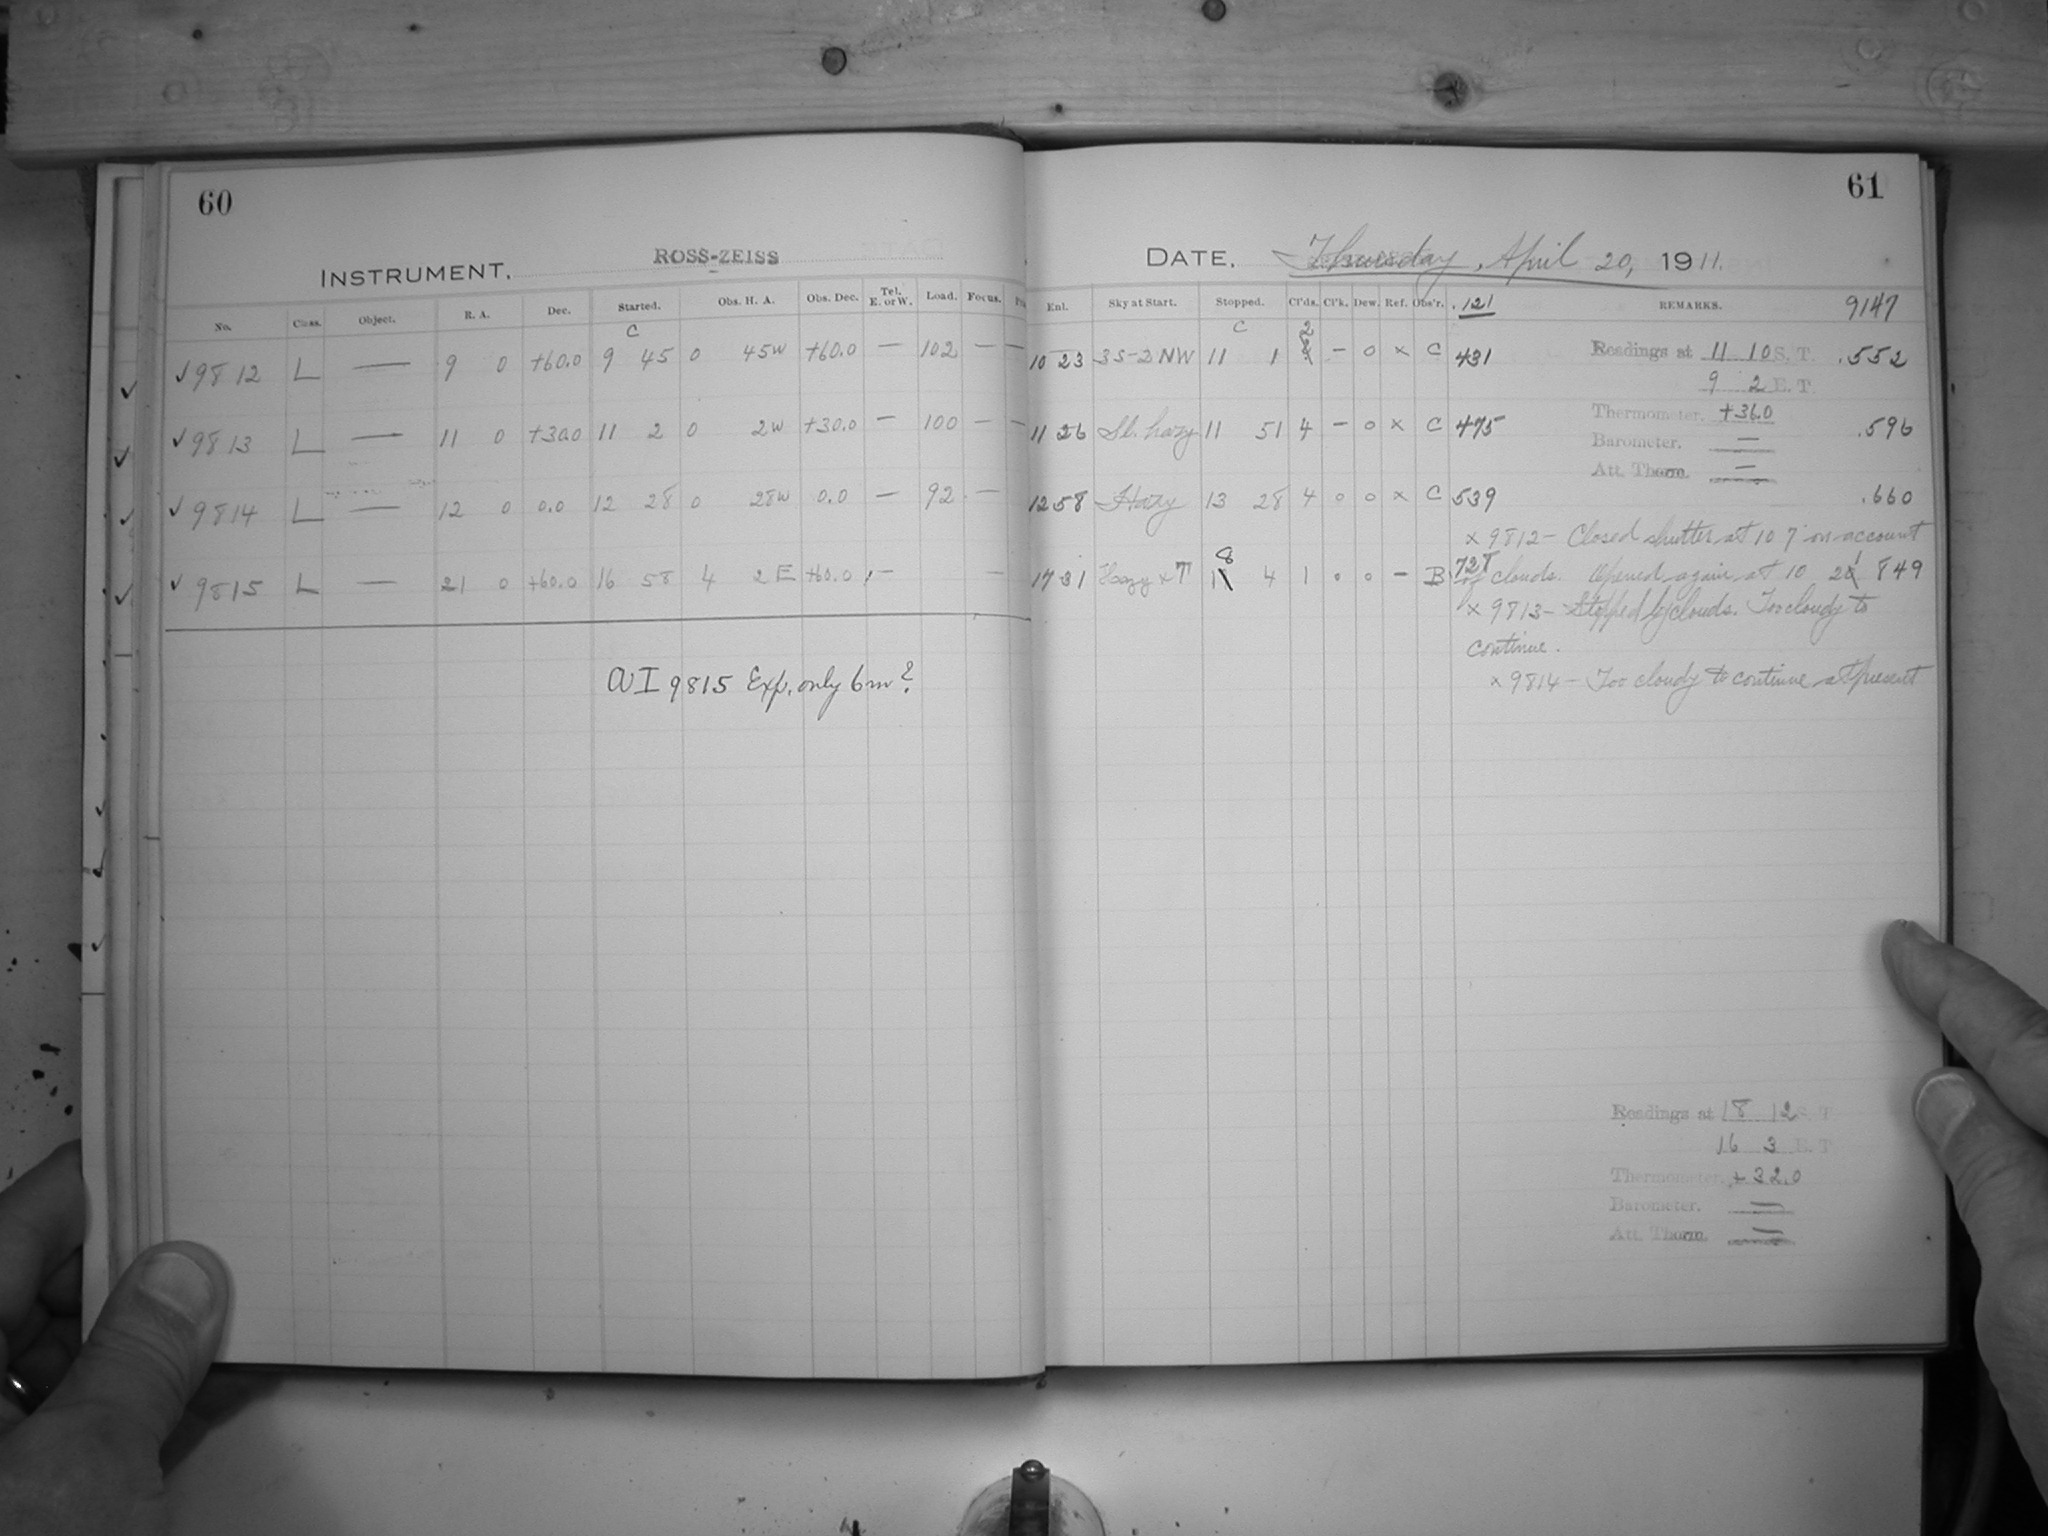 60
INSTRUMENT. ROSS-ZEISS
No. Class. Object. R. A. Dec. Started. Obs. H. A. Obs. Dec. Tel. E. or W. Load. Focus.
C
✓9812 L — 9 0 +60.0 9 45 0 45W +60.0 — 102 — —
✓9813 L — 11 0 +30.0 11 2 0 2W +30.0 — 100 — —
✓9814 L — 12 0 0.0 12 28 0 28W 0.0 — 92 —
✓9815 L — 21 0 +60.0 16 58 4 2E +60.0 — —
9815 Exp. only 6m?
61
DATE. Thursday, April 20, 1911.
Enl. Sky at Start. Stopped. Cl'ds. Cl'k. Dew. Ref. Obs'r. .121 REMARKS. 9147
C 2
10 23 3S-2NW 11 1 — 0 x C 431 Readings at 11 10 S. T. .552
9 2 E. T.
11 26 Sl. hazy 11 51 4 — 0 x C 475 Thermometer. +36.0 .596
Barometer. —
Att. Therm. —
12 58 Hazy 13 28 4 0 0 x C 539 .660
x 9812 — Closed shutter at 10 7 on account
8
17 31 Hazy x T 4 1 0 0 — B 728 of clouds. Opened again at 10 21 849
x 9813 — Stopped by clouds. Too cloudy to
continue.
x 9814 — Too cloudy to continue at present
Readings at 18 12 S. T.
16 3 E. T.
Thermometer. +32.0
Barometer. —
Att. Therm. —